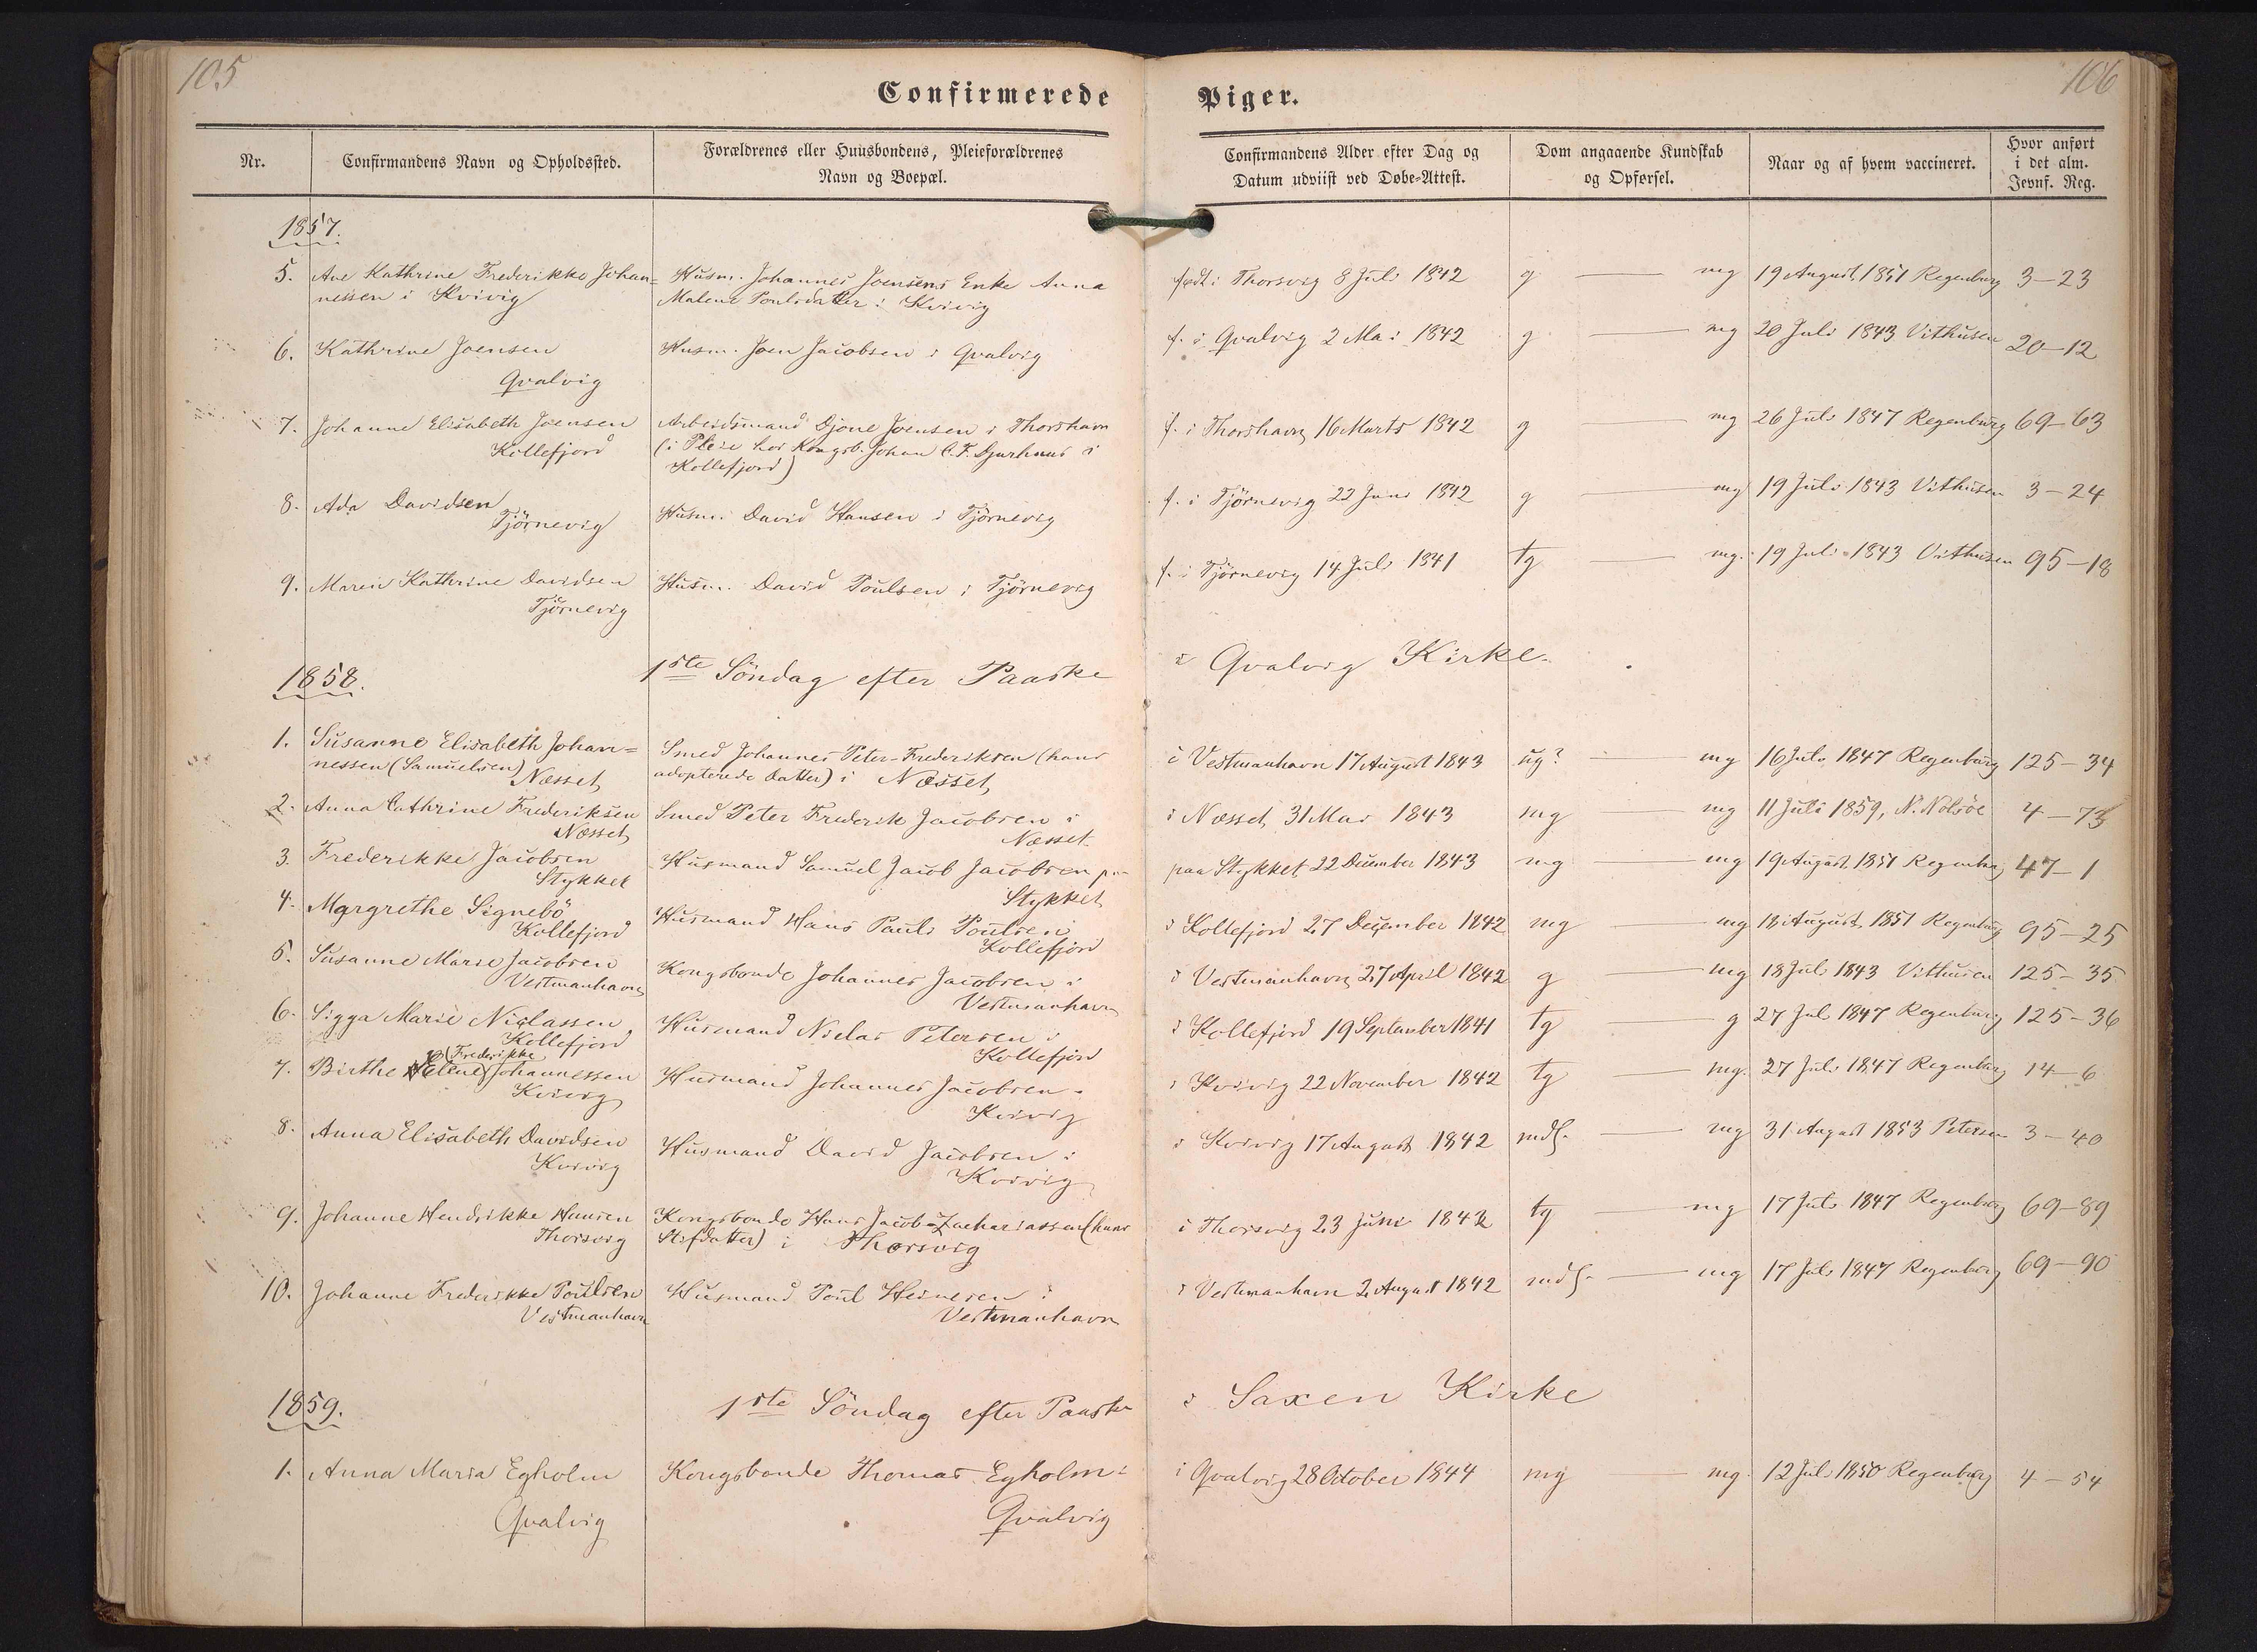 105
106
Confirmerede Piger.
Nr.
Confirmandens Navn og Opholdssted.
Forældrenes eller Huusbondens, Pleieforældrenes
Navn og Boepæl.
Confirmandens Alder efter Dag og
Datum udviist ved Døbe-Attest.
Dom angaaende Kundskab
og Opførsel.
Naar og af hvem vaccineret.
Hvor anført
i det alm.
Jevnf. Reg.
1857.
5. Ane Kathrine Frederikke Johan= Husm. Johannes Joensens Enke Anna født i Thorsvig 8 Juli 1842 g — mg 19 August 1851 Regenburg 3-23
nessen i Kvivig Malene Poulsdatter i Kvivig
6. Kathrine Joensen Husm. Joen Jacobsen i Qvalvig f. i Qvalvig 2 Mai 1842 g — mg 20 Juli 1843 Vithusen 20-12
Qvalvig
7. Johanne Elisabeth Joensen Arbeidsmand Djone Joensen i Thorshavn f. i Thorshavn 16 Marts 1842 g — mg 26 Juli 1847 Regenburg 69-63
Kollefjord (i Pleie hos Kongsb. Johan C. F. Djurhuus i
Kollefjord)
8. Ada Davidsen Husm. David Hansen i Tjörnevig f. i Tjörnevig 22 Juni 1842 g — mg 19 Juli 1843 Vithusen 3-24
Tjörnevig
9. Maren Kathrine Davidsen Husm. David Poulsen i Tjörnevig f. i Tjörnevig 14 Juli 1841 tg — mg. 19 Juli 1843 Vithusen 95-18
Tjörnevig
1858. 1ste Söndag efter Paaske i Qvalvig Kirke.
1. Susanne Elisabeth Johan= Smed Johannes Peter Frederiksen (hans i Vestmanhavn 17 August 1843 ug? — mg 16 Juli 1847 Regenburg 125-34
nessen (Samuelsen) Næsset adopterede Datter) i Næsset
2. Anna Cathrine Frederiksen Smed Peter Frederik Jacobsen i i Næsset 31 Mai 1843 mg — mg 11 Juli 1859, N. Nolsöe 4-73
Næsset Næsset.
3. Frederikke Jacobsen Husmand Samuel Jacob Jacobsen paa Stykket 22 December 1843 mg — mg 19 August 1851 Regenburg 47-1
Stykket Stykket
4. Margrethe Signebö Husmand Hans Pauli Poulsen i Kollefjord 27 December 1842 mg — mg 18 August 1851 Regenburg 95-25
Kollefjord Kollefjord
5. Susanne Marie Jacobsen Kongsbonde Johannes Jacobsen i i Vestmanhavn 27 April 1842 g — mg 18 Juli 1843 Vithusen 125-35
Vestmanhavn Vestmanhavn
6. Sigga Marie Niclassen Husmand Niclas Petersen i i Kollefjord 19 September 1841 tg — g 27 Juli 1847 Regenburg 125-36
Kollefjord Kollefjord
(Frederikke
7. Birthe Helene Johannessen Husmand Johannes Jacobsen i i Kvivig 22 November 1842 tg — mg. 27 Juli 1847 Regenburg 14-6
Kvivig Kvivig
8. Anna Elisabeth Davidsen Husmand David Jacobsen i i Kvivig 17 August 1842 mdl. — mg 31 August 1853 Petersen 3-40
Kvivig Kvivig
9. Johanne Hendrikke Hansen Kongsbonde Hans Jacob Zachariassen (hans i Thorsvig 23 Juni 1842 tg — mg 17 Juli 1847 Regenburg 69-89
Thorsvig Stifdatter) i Thorsvig
10. Johanne Frederikke Poulsen Husmand Poul Heinesen i i Vestmanhavn 2 August 1842 mdl. — mg 17 Juli 1847 Regenburg 69-90
Vestmanhavn Vestmanhavn
1859. 1ste Söndag efter Paaske i Saxen Kirke
1. Anna Maria Egholm Kongsbonde Thomas Egholm i i Qvalvig 28 October 1844 mg — mg. 12 Juli 1850 Regenburg 4-54
Qvalvig Qvalvig